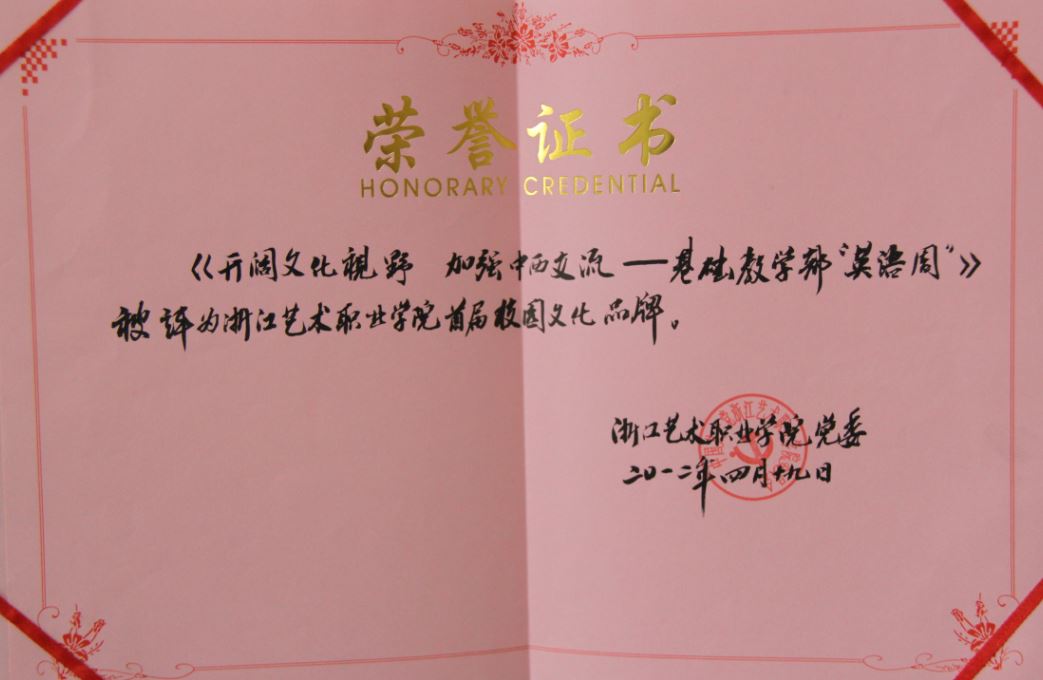 荣誉证书
HONORARY CREDENTIAL
《开阔文化视野 加强中西交流——基础教学部“英语周”》
被评为浙江艺术职业学院首届校园文化品牌。
浙江艺术职业学院党委
二〇一二年四月十九日